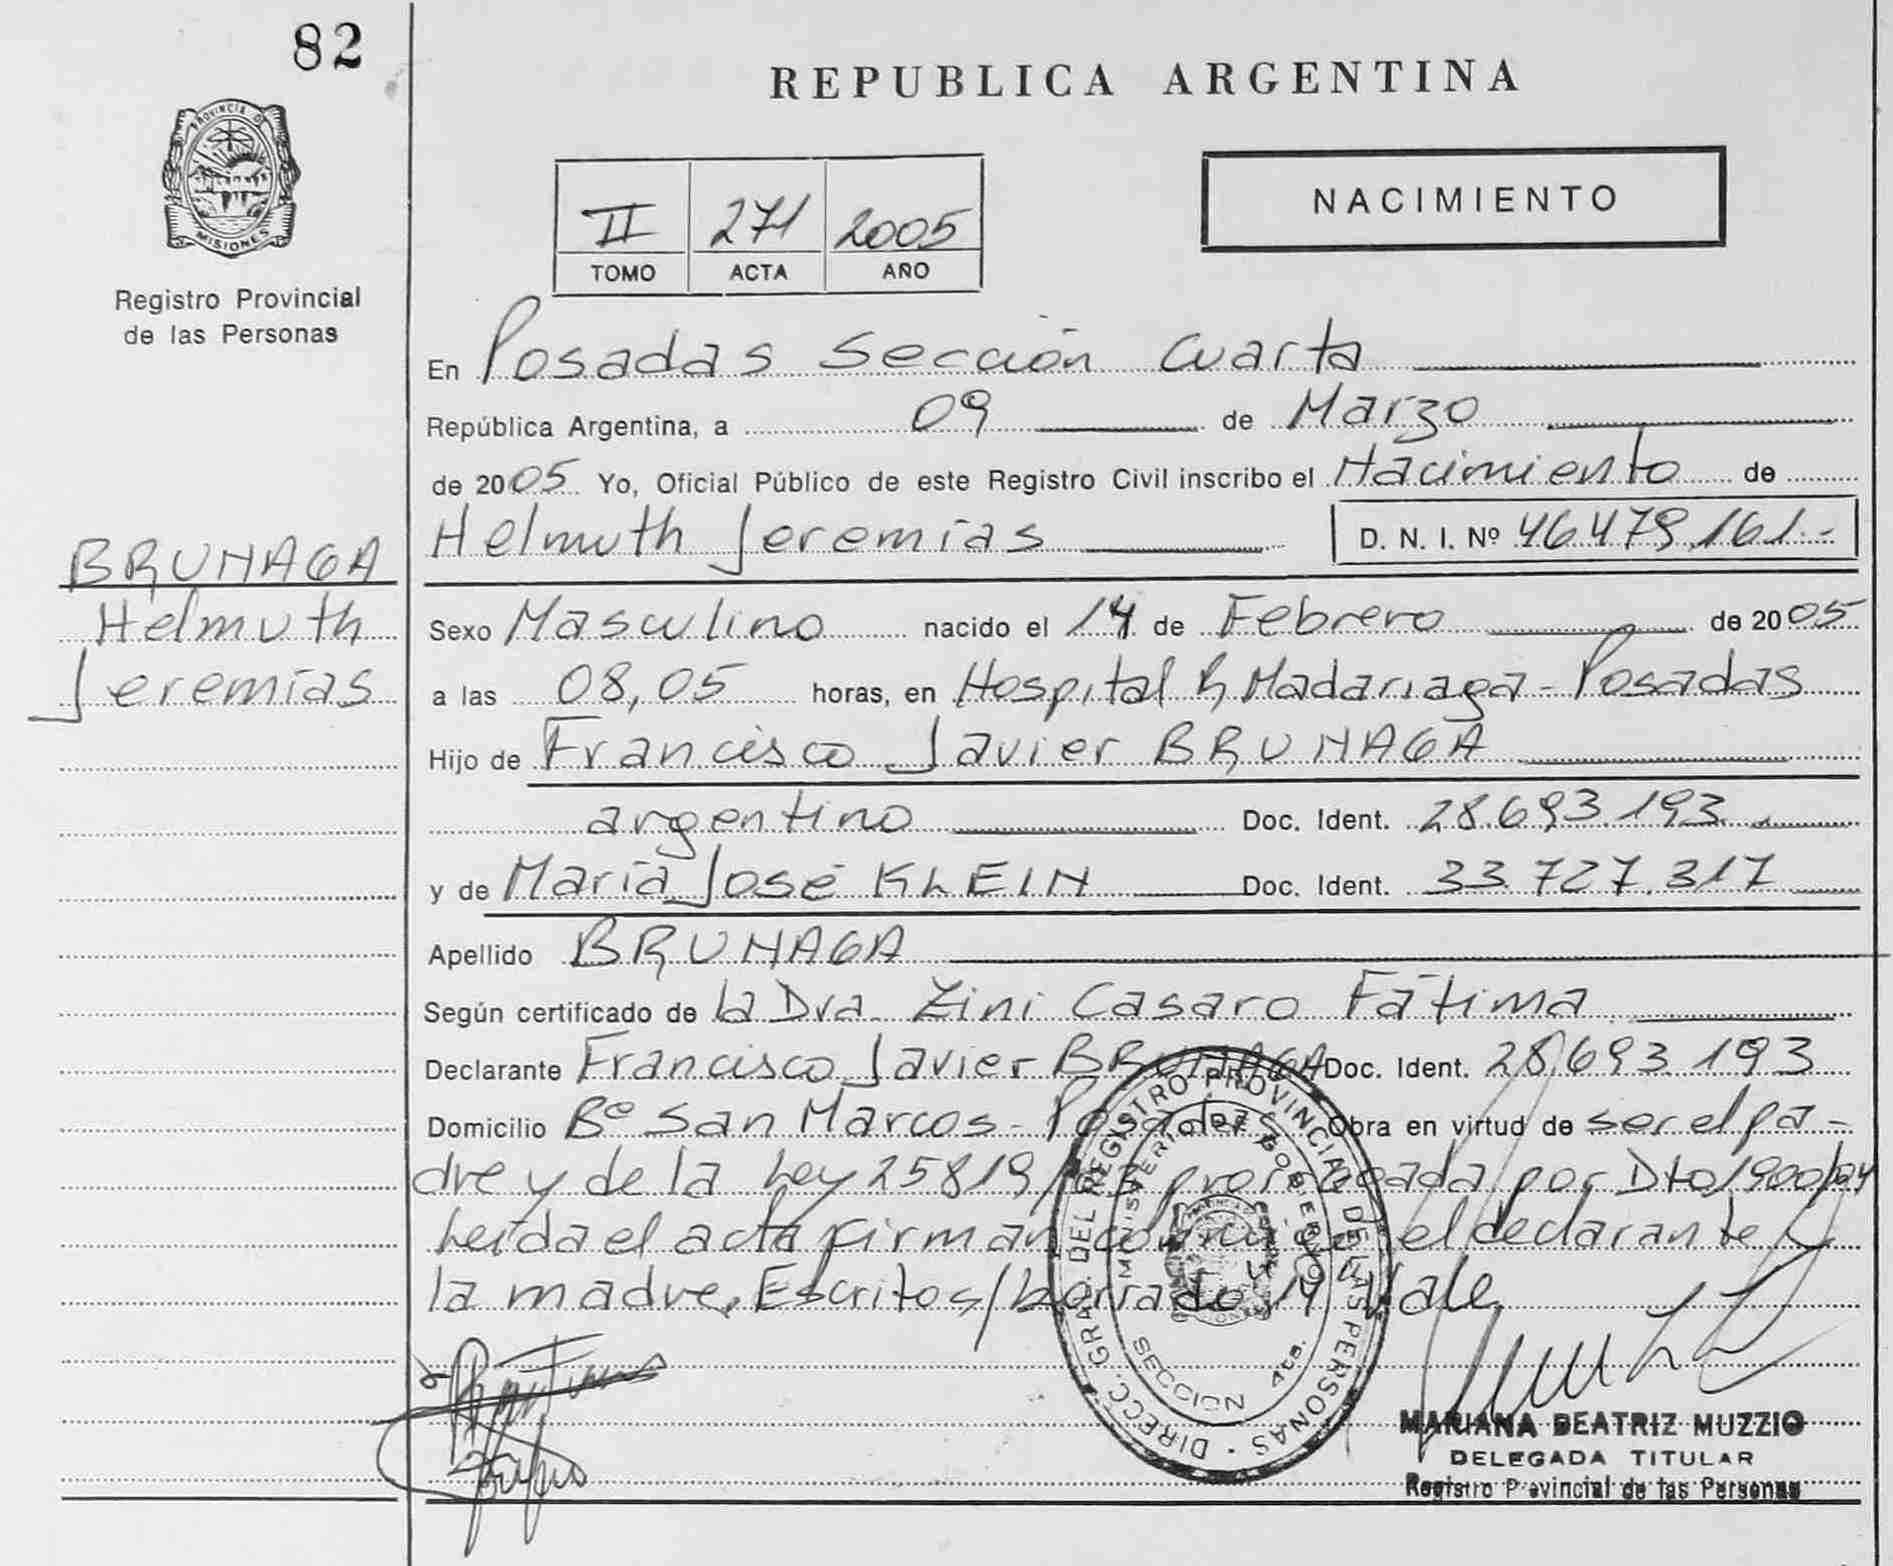 82
REPUBLICA ARGENTINA
PROVINCIA DE
MISIONES
Registro Provincial
de las Personas
II 271 2005
TOMO ACTA AÑO
NACIMIENTO
En Posadas Sección Cuarta
República Argentina, a 09 de Marzo
de 2005 Yo, Oficial Público de este Registro Civil inscribo el Nacimiento de
Helmuth Jeremías D. N. I. Nº 46.479.161.-
BRUNAGA
Helmuth
Jeremías
Sexo Masculino nacido el 14 de Febrero de 2005
a las 08,05 horas, en Hospital R Madariaga - Posadas
Hijo de Francisco Javier BRUNAGA
argentino Doc. Ident. 28.693.193.
y de María José KLEIN Doc. Ident. 33.727.317
Apellido BRUNAGA
Según certificado de la Dra. Zini Casaro Fátima
Declarante Francisco Javier BRUNAGA Doc. Ident. 28.693.193
Domicilio Bº San Marcos - Posadas Obra en virtud de ser el pa-
dre y de la Ley 25819/03 prorrogada por Dto 1900/04
Leída el acta firman conmigo el declarante y
la madre. Escritos/borrado 14 Vale.
DIRECC. GRAL. DEL REGISTRO PROVINCIAL DE LAS PERSONAS
MINISTERIO DE GOBIERNO
SECCION 4ta.
MARIANA BEATRIZ MUZZIO
DELEGADA TITULAR
Registro Provincial de las Personas